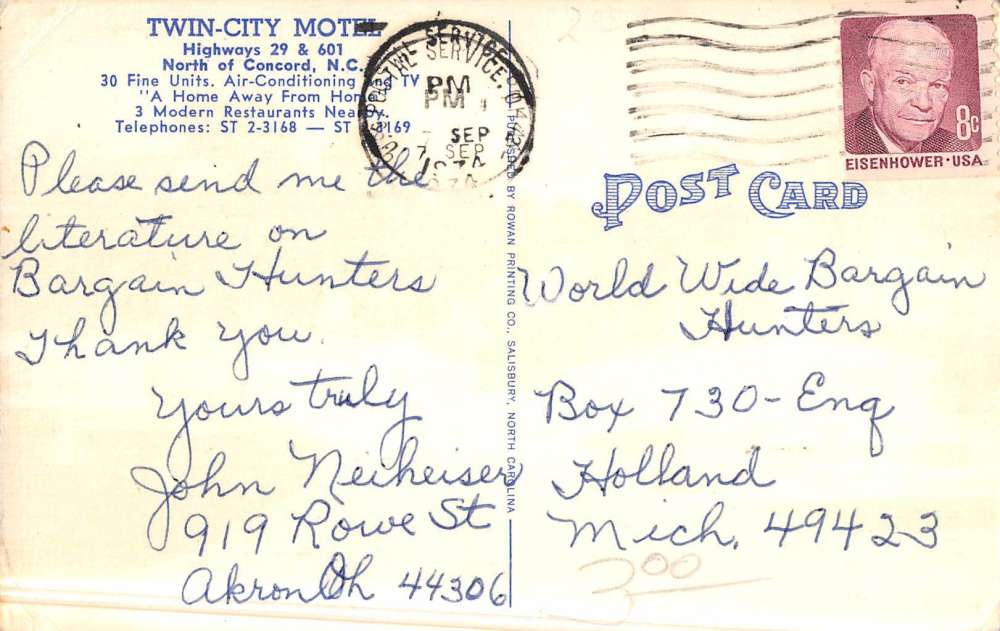 TWIN-CITY MOTEL
Highways 29 & 601
North of Concord, N.C.
30 Fine Units. Air-Conditioning and TV
"A Home Away From Home
3 Modern Restaurants Nearby
Telephones: ST 2-3168 — ST 3169
POSTAL SERVICE
PM
PM
SEP
7 SEP
8c
EISENHOWER·USA
POST CARD
PUBLISHED BY ROWAN PRINTING CO., SALISBURY, NORTH CAROLINA
Please send me the
literature on
Bargain Hunters
Thank you.
Yours truly
John Neiheiser
919 Rowe St
Akron Oh 44306
World Wide Bargain
Hunters
Box 730-Enq
Holland
Mich. 49423
3.00